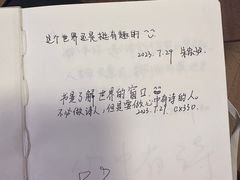 这个世界还是挺有趣的
2023.7.29
书是了解世界的窗口.
不必做诗人，但是要做心中有诗的人。
2023.7.29. CX350